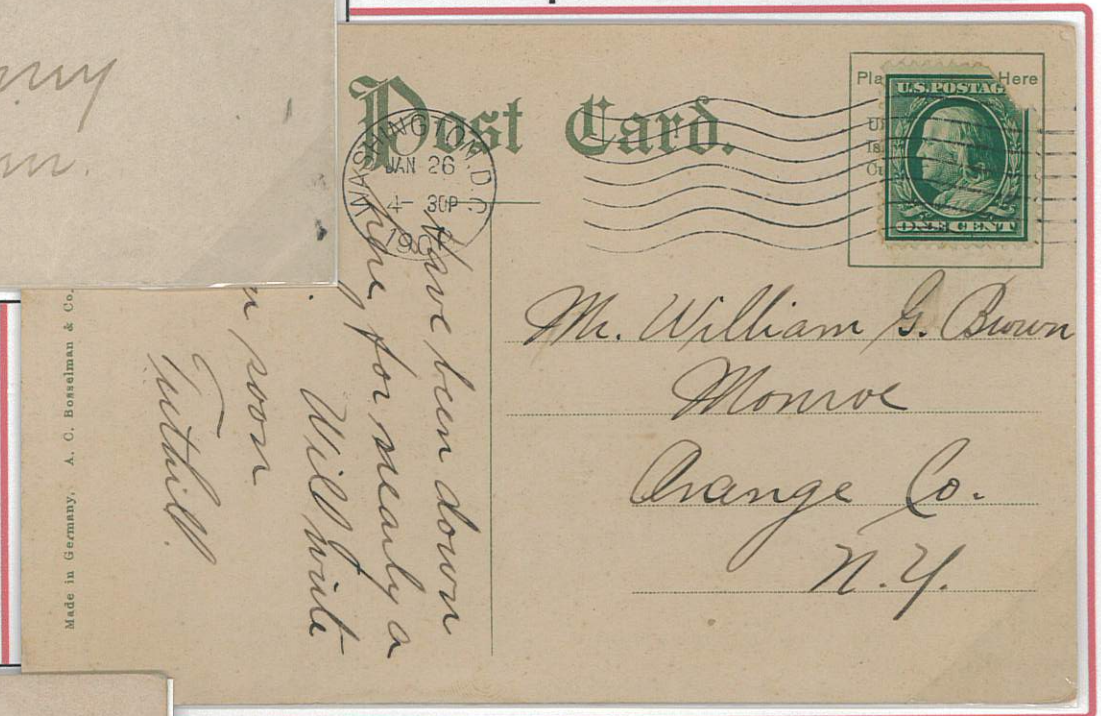 Post Card.
WASHINGTON, D.C.
JAN 26
4- 30P
Here
U.S. POSTAG
ONE CENT
Mr. William G. Brown
Monroe
Orange Co.
N.Y.
Have been down
here, for nearly a
Will write
soon
Tuthill.
Made in Germany, A. C. Bosselman & Co.